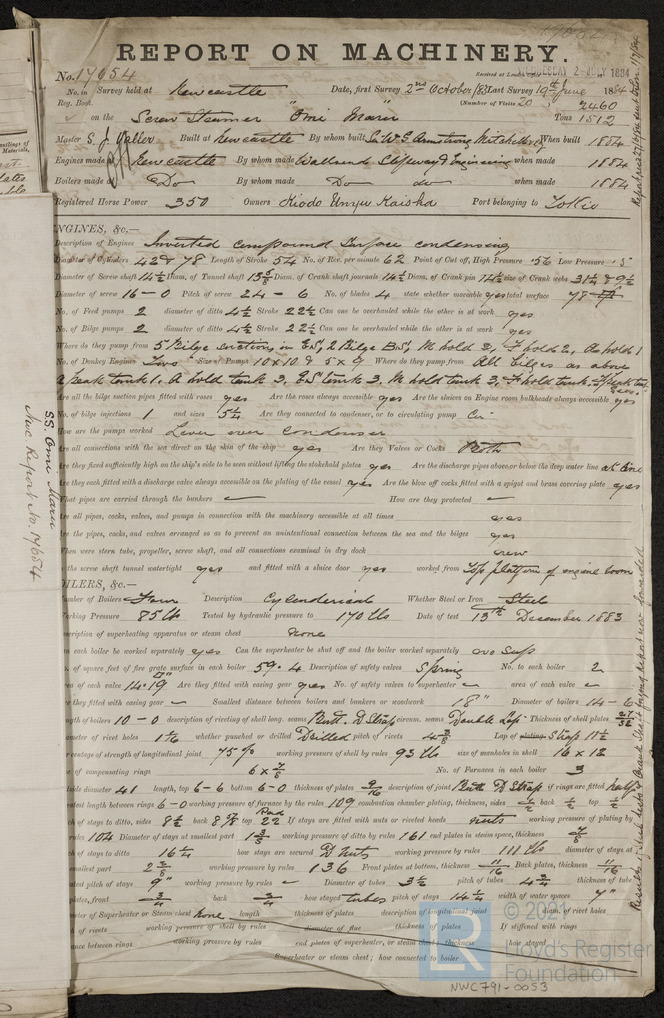 REPORT ON MACHINERY.
No. 17654 Received at London WEDNESDAY 2 JULY 1884
No. in Reg. Book. Survey held at Newcastle Date, first Survey 2nd October Last Survey 19th June 1884
(Number of Visits 20)
on the Screw Steamer "Omi Maru" Tons 2460 1512
Master Built at Newcastle By whom built Sir W G Armstrong Mitchell & Co When built 1884
Engines made at Newcastle By whom made Wallsend Slipway & Engineering when made 1884
Boilers made at Do By whom made Do do when made 1884
Registered Horse Power 350 Owners Kiodo Unyu Kaisha Port belonging to Tokio
ENGINES, &c.—
Description of Engines Inverted compound Surface condensing
Diameter of Cylinders 42 & 78 Length of Stroke 54 No. of Rev. per minute 62 Point of Cut off, High Pressure ·56 Low Pressure ·5
Diameter of Screw shaft 14½ Diam. of Tunnel shaft 13⅝ Diam. of Crank shaft journals 14½ Diam. of Crank pin 14½ size of Crank webs
Diameter of screw 16-0 Pitch of screw 24-6 No. of blades 4 state whether moveable yes total surface 78
No. of Feed pumps 2 diameter of ditto 4½ Stroke 22½ Can one be overhauled while the other is at work yes
No. of Bilge pumps 2 diameter of ditto 4½ Stroke 22½ Can one be overhauled while the other is at work yes
Where do they pump from
No. of Donkey Engines Two Size of Pumps 10 x 10 & 5 x 9 Where do they pump from All bilges as above
Are all the bilge suction pipes fitted with roses yes Are the roses always accessible yes Are the sluices on Engine room bulkheads always accessible yes
No. of bilge injections 1 and sizes 5½ Are they connected to condenser, or to circulating pump Cir
How are the pumps worked Lever over condenser
Are all connections with the sea direct on the skin of the ship yes Are they Valves or Cocks Both
Are they fixed sufficiently high on the ship's side to be seen without lifting the stokehold plates yes Are the discharge pipes above or below the deep water line
Are they each fitted with a discharge valve always accessible on the plating of the vessel yes Are the blow off cocks fitted with a spigot and brass covering plate yes
What pipes are carried through the bunkers — How are they protected —
Are all pipes, cocks, valves, and pumps in connection with the machinery accessible at all times yes
Are the pipes, cocks, and valves arranged so as to prevent an unintentional connection between the sea and the bilges yes
When were stern tube, propeller, screw shaft, and all connections examined in dry dock new
Is the screw shaft tunnel watertight yes and fitted with a sluice door yes worked from Top platform of engine room
BOILERS, &c.—
Number of Boilers Four Description Cylindrical Whether Steel or Iron Steel
Working Pressure 85 lbs Tested by hydraulic pressure to 170 lbs Date of test 13th December 1883
Description of superheating apparatus or steam chest None
Can each boiler be worked separately yes Can the superheater be shut off and the boiler worked separately no Sup
No. of square feet of fire grate surface in each boiler 59.4 Description of safety valves Spring No. to each boiler 2
Area of each valve 14.19 Are they fitted with easing gear yes No. of safety valves to superheater — area of each valve —
Are they fitted with easing gear — Smallest distance between boilers and bunkers or woodwork 18" Diameter of boilers 14-6
Length of boilers 10-0 description of riveting of shell long. seams Butt D Strap circum. seams Double Lap Thickness of shell plates
Diameter of rivet holes whether punched or drilled Drilled pitch of rivets Lap of plating Strap
Percentage of strength of longitudinal joint 75% working pressure of shell by rules 93 lbs size of manholes in shell 16 x 12
Size of compensating rings 6 x ⅞ No. of Furnaces in each boiler 3
Outside diameter 41 length, top 6-6 bottom 6-0 thickness of plates 9/16 description of joint Butt D Strap if rings are fitted half
Greatest length between rings 6-0 working pressure of furnace by the rules 109 combustion chamber plating, thickness, sides ½ back ½ top ½
Pitch of stays to ditto, sides 8½ back 8⅞ top Rad 22 If stays are fitted with nuts or riveted heads nuts working pressure of plating by
rules 104 Diameter of stays at smallest part 1⅜ working pressure of ditto by rules 161 end plates in steam space, thickness ⅞
Pitch of stays to ditto 16¼ how stays are secured D nuts working pressure by rules 111 lbs diameter of stays at
smallest part working pressure by rules 136 Front plates at bottom, thickness 11/16 Back plates, thickness 11/16
Greatest pitch of stays 9" working pressure by rules — Diameter of tubes 3½ pitch of tubes 4¾ thickness of tube
plates, front ¾ back ¾ how stayed tubes pitch of stays 14¼ width of water spaces 7"
Diameter of Superheater or Steam chest None length thickness of plates description of longitudinal joint diam. of rivet holes
Pitch of rivets working pressure of shell by rules diameter of flue thickness of plates If stiffened with rings
distance between rings working pressure by rules end plates of superheater, or steam chest; thickness how stayed
Superheater or steam chest; how connected to boiler
SS. Omi Maru
Nwc Report No. 17654
LR
© 2021
Lloyd's Register
Foundation
NWC791-0053